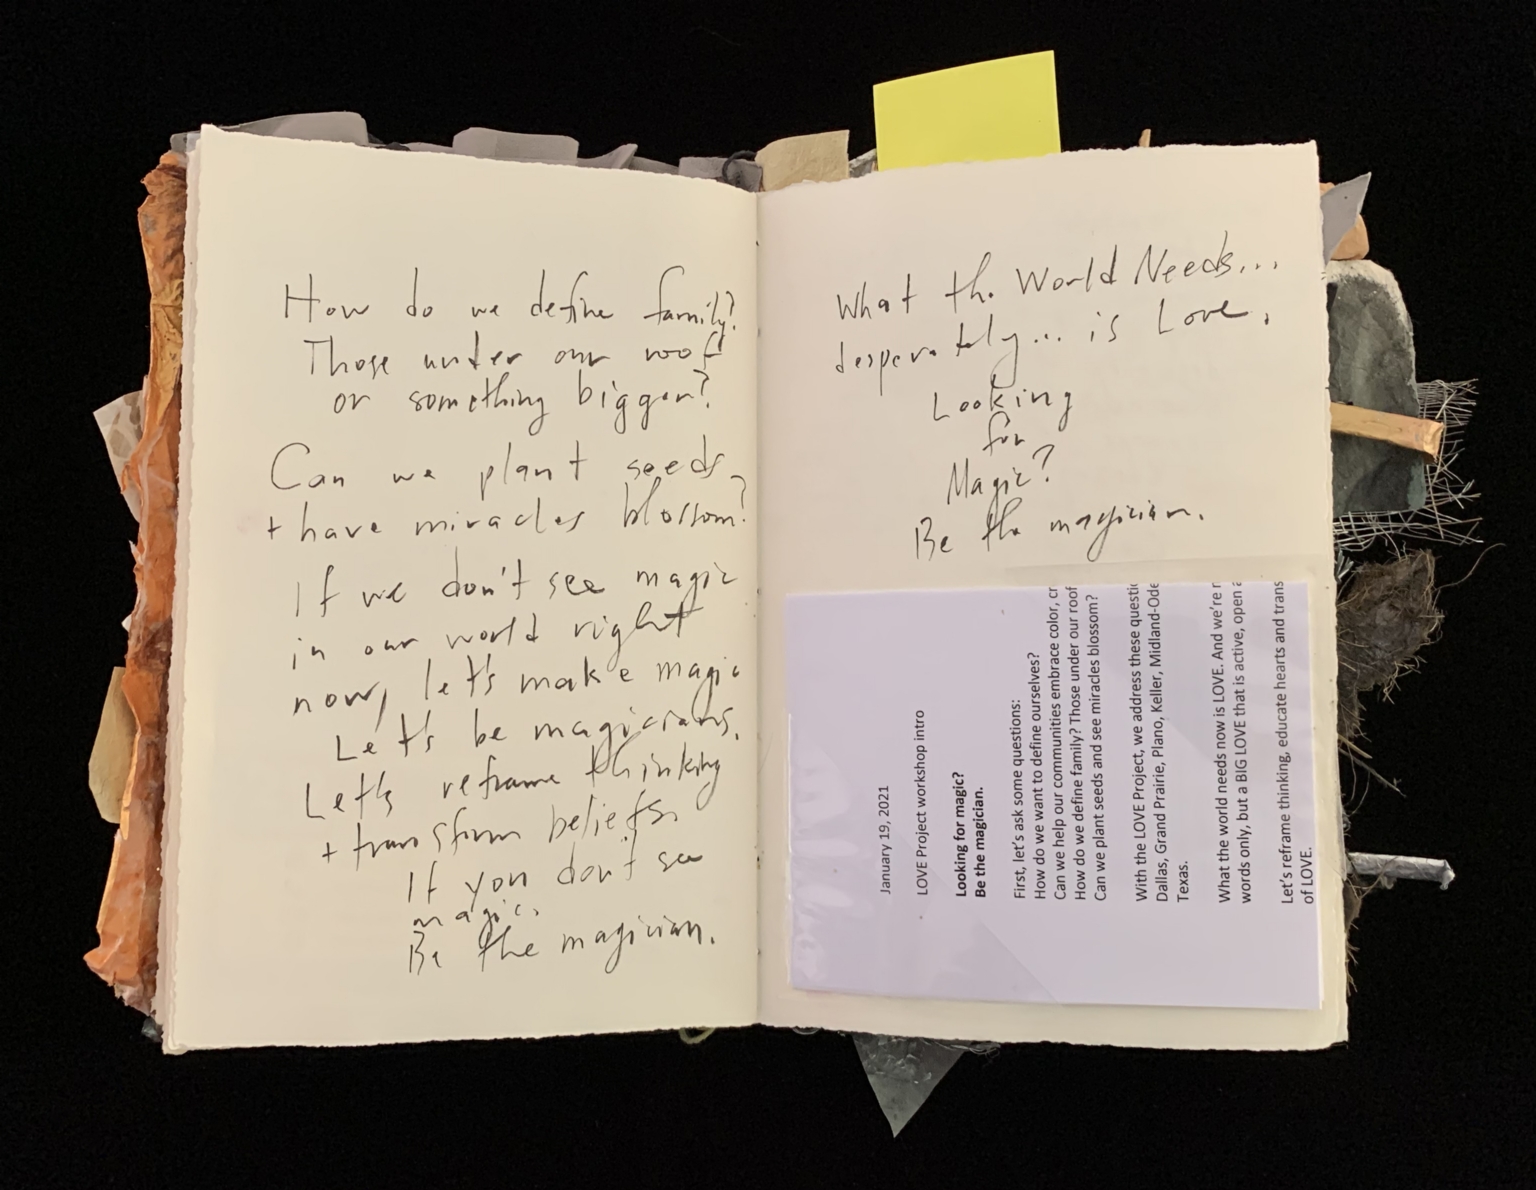 How do we define family?
Those under our roof
or something bigger?
Can we plant seeds
+ have miracles blossom?
If we don't see magic
in our world right
now, let's make magic
Let's be magicians.
Let's reframe thinking
+ transform beliefs.
If you don't see
magic.
Be the magician.
What the World Needs...
desperately... is Love.
Looking
for
Magic?
Be the magician.
January 19, 2021
LOVE Project workshop intro
Looking for magic?
Be the magician.
First, let's ask some questions:
How do we want to define ourselves?
Can we help our communities embrace color, cr
How do we define family? Those under our roof
Can we plant seeds and see miracles blossom?
With the LOVE Project, we address these questio
Dallas, Grand Prairie, Plano, Keller, Midland-Ode
Texas.
What the world needs now is LOVE. And we're r
words only, but a BIG LOVE that is active, open a
Let's reframe thinking, educate hearts and trans
of LOVE.